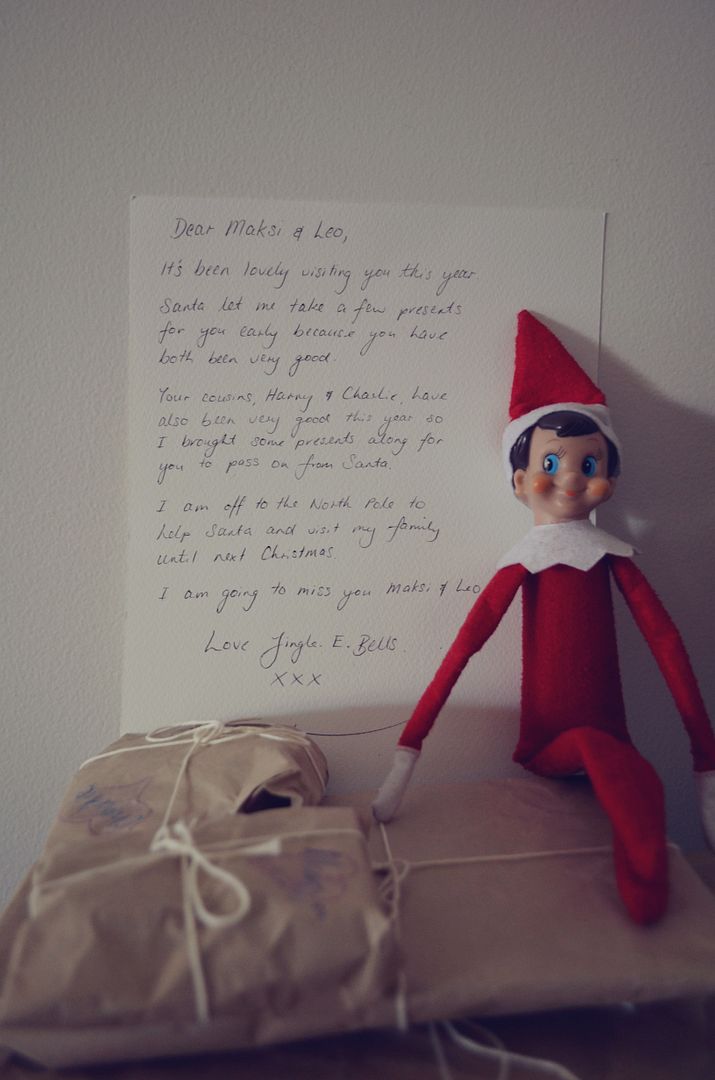 Dear Maksi & Leo,
It's been lovely visiting you this year.
Santa let me take a few presents
for you early because you have
both been very good.
Your cousins, Harry & Charlie, have
also been very good this year so
I brought some presents along for
you to pass on from Santa.
I am off to the North Pole to
help Santa and visit my family
until next Christmas.
I am going to miss you Maksi & Leo
Love Jingle. E. Bells.
XXX